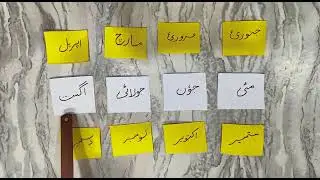 جنوری فروری مارچ اپریل
مئی جون جولائی اگست
ستمبر اکتوبر نومبر دسمبر